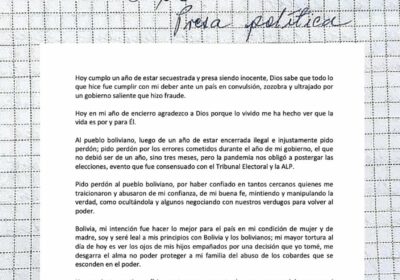 Presa política
Hoy cumplo un año de estar secuestrada y presa siendo inocente, Dios sabe que todo lo
que hice fue cumplir con mi deber ante un país en convulsión, zozobra y ultrajado por
un gobierno saliente que hizo fraude.
Hoy en mi año de encierro agradezco a Dios porque lo vivido me ha hecho ver que la
vida es por y para Él.
Al pueblo boliviano, luego de un año de estar encerrada ilegal e injustamente pido
perdón; pido perdón por los errores cometidos durante el año de mi gobierno, el que
no debió ser de un año, sino tres meses, pero la pandemia nos obligó a postergar las
elecciones, evento que fue consensuado con el Tribunal Electoral y la ALP.
Pido perdón al pueblo boliviano, por haber confiado en tantos cercanos quienes me
traicionaron y abusaron de mi confianza, de mi buena fe, mintiendo y manipulando la
verdad, como ocultándola y algunos negociando con nuestros verdugos para volver al
poder.
Bolivia, mi intención fue hacer lo mejor para el país en mi condición de mujer y de
madre, soy y seré leal a mis principios con Bolivia y los bolivianos; mi mayor tortura al
día de hoy es ver los ojos de mis hijos empañados por una decisión que yo tomé, me
desgarra el alma no poder proteger a mi familia del abuso de los cobardes que se
esconden en el poder.